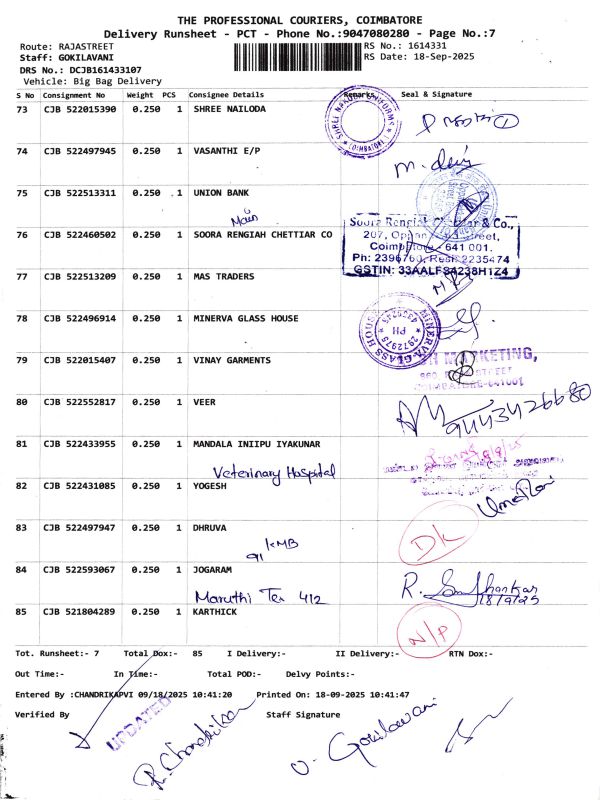 THE PROFESSIONAL COURIERS, COIMBATORE
Delivery Runsheet - PCT - Phone No.:9047080280 - Page No.:7
Route: RAJASTREET
RS No.: 1614331
Staff: GOKILAVANI
RS Date: 18-Sep-2025
DRS No.: DCJB161433107
Vehicle: Big Bag Delivery
S No Consignment No Weight PCS Consignee Details Remarks Seal & Signature
73 CJB 522015390 0.250 1 SHREE NAILODA
74 CJB 522497945 0.250 1 VASANTHI E/P
M. devi
75 CJB 522513311 0.250 1 UNION BANK
Main
76 CJB 522460502 0.250 1 SOORA RENGIAH CHETTIAR CO
Soora Rengiah & Co.,
207,
Coimbatore - 641 001.
Ph: 2396760, Resi: 2235474
GSTIN: 33AALFS4238H1Z4
77 CJB 522513209 0.250 1 MAS TRADERS
78 CJB 522496914 0.250 1 MINERVA GLASS HOUSE
MINERVA GLASS HOUSE
PH
2972975
79 CJB 522015407 0.250 1 VINAY GARMENTS
MARKETING,
COIMBATORE-641001
80 CJB 522552817 0.250 1 VEER
9443426680
81 CJB 522433955 0.250 1 MANDALA INIIPU IYAKUNAR
Veterinary Hospital
82 CJB 522431085 0.250 1 YOGESH
Uma Rani
83 CJB 522497947 0.250 1 DHRUVA
DK
91 KMB
84 CJB 522593067 0.250 1 JOGARAM
Maruthi Tex 412
R.
18/9/25
85 CJB 521804289 0.250 1 KARTHICK
N/P
Tot. Runsheet:- 7 Total Dox:- 85 I Delivery:- II Delivery:- RTN Dox:-
Out Time:- In Time:- Total POD:- Delvy Points:-
Entered By :CHANDRIKAPVI 09/18/2025 10:41:20 Printed On: 18-09-2025 10:41:47
Verified By Staff Signature
UPDATED
R. Chandrika
V. Gokilavani